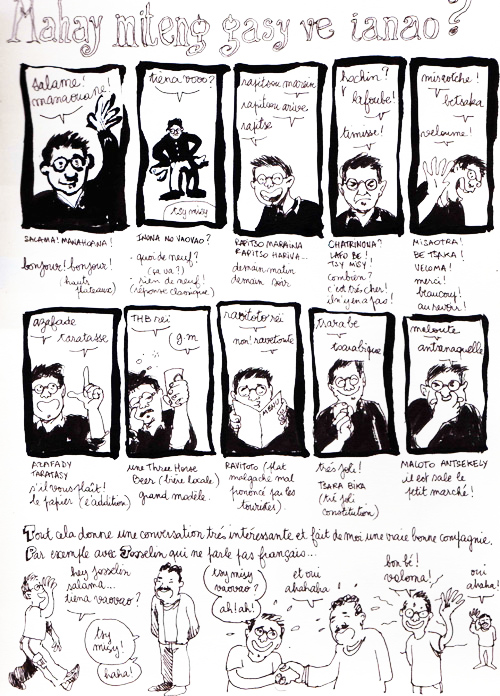 Mahay miteng gasy ve ianao?
salame!
manaouane!
tiena vovo?
tsy misy
rapitsou marein
rapitsou arive
rapitse
hachin?
lafoube!
timisse!
misaotche!
betsaka
veloume!
SALAMA! MANAHOANA!
bonjour! bonjour!
(hauts plateaux)
INONA NO VAOVAO?
quoi de neuf?
(ça va?)
rien de neuf!
(réponse classique)
RAPITSO MARAINA
RAPITSO HARIVA...
demain matin
demain soir
CHATRINONA?
LAFO BE!
TSY MISY!
combien?
c'est très cher!
j'n'y en a pas!
MISAOTRA!
BE TSAKA!
VELOMA!
merci!
beaucoup!
au revoir!
azafade
taratasse
THB rei
g.m
ravitoto rei
non! ravetoute
tsarabe
tsarabique
meloute
antsenaquelle
AZAFADY
TARATASY
s'il vous plaît!
le papier (l'addition)
une Three Horse
Beer (bière locale)
grand modèle.
RAVITOTO (plat
malgache mal
prononcé par les
touristes).
très joli!
TSARA BIKA
(très joli
constitution)
MALOTO ANTSEKELY
il est sale le
petit marché!
Tout cela donne une conversation très intéressante et fait de moi une vraie bonne compagnie.
Par exemple avec Josselin qui ne parle pas français...
hey Josselin
salama...
tiena vaovao?
tsy
misy!
haha!
tsy misy
vaovao?
ah! ah!
et oui
ahahaha
bon bé!
veloma!
oui
ahaha!